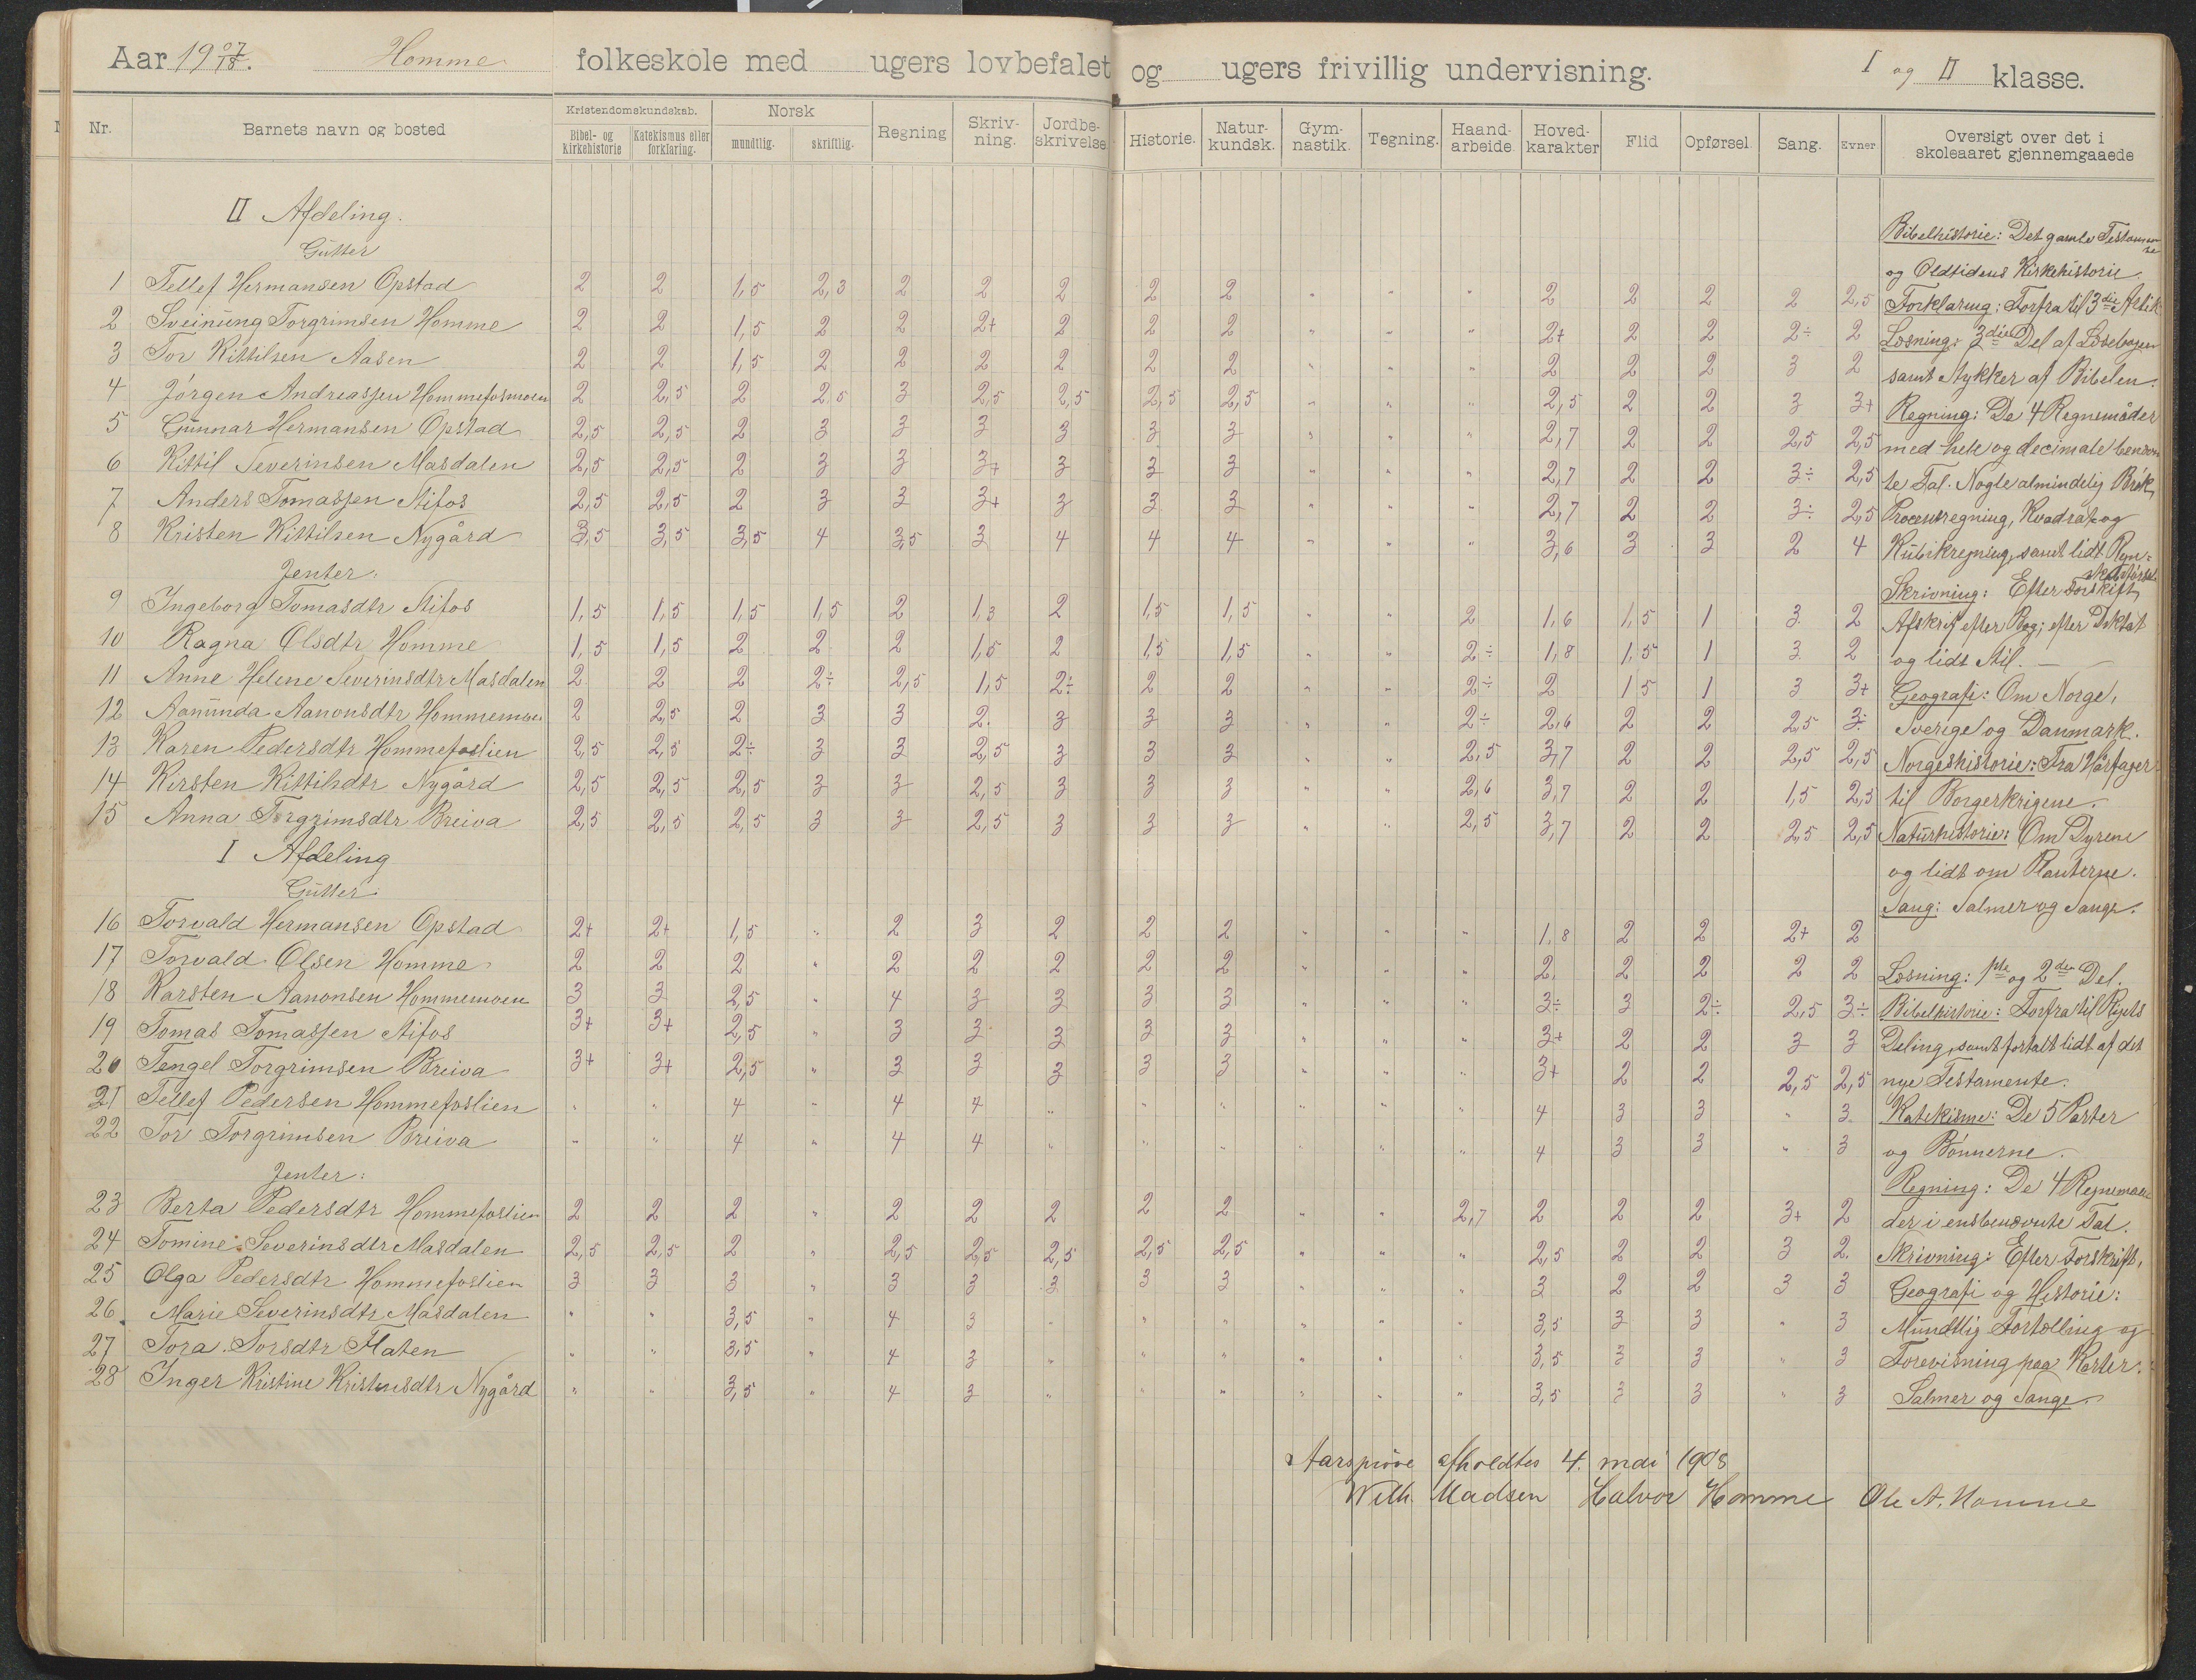 Aar 19 07/18. Homme folkeskole med ugers lovbefalet og ugers frivillig undervisning. I og II klasse.
Nr. Barnets navn og bosted Kristendomskundskab. Bibel- og kirkehistorie Katekismus eller forklaring. Norsk mundtlig. skriftlig. Regning Skriv-ning. Jordbe-skrivelse. Historie. Natur-kundsk. Gym-nastik. Tegning. Haand-arbeide. Hoved-karakter Flid Opførsel. Sang. Evner Oversigt over det i skoleaaret gjennemgaaede
II Afdeling.
Gutter
1 Tellef Hermansen Opstad 2 2 1,5 2,3 2 2 2 2 2 " " " 2 2 2 2 2,5
2 Sveinung Torgrimsen Homme 2 2 1,5 2 2 2+ 2 2 2 " " " 2+ 2 2 2÷ 2
3 Tor Kittilsen Aasen 2 2 1,5 2 2 2 2 2 2 " " " 2 2 2 3 2
4 Jörgen Andreassen Hommefosmoen 2 2,5 2 2.5 3 2,5 2,5 2,5 2,5 " " " 2,5 2 2 3 3+
5 Gunnar Hermansen Opstad 2,5 2,5 2 3 3 3 3 3 3 " " " 2,7 2 2 2,5 2,5
6 Kittil Severinsen Masdalen 2,5 2,5 2 3 3 3+ 3 3 3 " " " 2,7 2 2 3÷ 2,5
7 Anders Tomassen Stifos 2,5 2,5 2 3 3 3+ 3 3 3 " " " 2,7 2 2 3÷ 2,5
8 Kristen Kittilsen Nygård 3,5 3,5 3,5 4 3,5 3 4 4 4 " " " 3,6 3 3 2 4
Jenter:
9 Ingeborg Tomasdtr Stifos 1,5 1,5 1,5 1,5 2 1,3 2 1,5 1,5 " " 2 1,6 1,5 1 3 2
10 Ragna Olsdtr Homme 1,5 1,5 2 2 2 1,5 2 1,5 1,5 " " 2÷ 1,8 1,5 1 3 2
11 Anne Helene Severinsdtr Masdalen 2 2 2 2÷ 2,5 1,5 2÷ 2 2 " " 2÷ 2 1 5 1 3 3+
12 Aanunda Aanonsdtr Hommemoen 2 2,5 2 3 3 2. 3 3 3 " " 2÷ 2,6 2 2 2,5 3÷
13 Karen Pedersdtr Hommefoslien 2,5 2,5 2÷ 3 3 2,5 3 3 3 " " 2,5 3,7 2 2 2,5 2,5
14 Kirsten Kittilsdtr Nygård 2,5 2,5 2,5 3 3 2,5 3 3 3 " " 2,6 3,7 2 2 1,5 2,5
15 Anna Torgrimsdtr Breiva 2,5 2,5 2,5 3 3 2,5 3 3 3 " " 2,5 3,7 2 2 2,5 2,5
I Afdeling
Gutter
16 Torvald Hermansen Opstad 2+ 2+ 1,5 " 2 3 2 2 2 " " " 1,8 2 2 2+ 2
17 Torvald Olsen Homme 2 2 2 " 2 2 2 2 2 " " " 2. 2 2 2 2
18 Karsten Aanonsen Hommemoen 3 3 2,5 " 4 3 3 3 3 " " " 3÷ 3 2÷ 2,5 3÷
19 Tomas Tomassen Stifos 3+ 3+ 2,5 " 3 3 3 3 3 " " " 3+ 2 2 3 3
20 Tengel Torgrimsen Breiva 3+ 3+ 2,5 " 3 3 3 3 3 " " " 3+ 2 2 2,5 2,5
21 Tellef Pedersen Hommefoslien " " 4 " 4 4 " " " " " " 4 3 3 " 3.
22 Tor Torgrimsen Breiva " " 4 " 4 4 " " " " " " 4 3 3 " 3
Jenter:
23 Berta Pedersdtr Hommefoslien 2 2 2 " 2 2 2 2 2 " " 2,7 2 2 2 3+ 2
24 Tomine Severinsdtr Masdalen 2,5 2,5 2 " 2,5 2,5 2,5 2,5 2,5 " " " 2,5 2 2 3 2.
25 Olga Pedersdtr Hommefoslien 3 3 3 " 3 3 3 3 3 " " " 3 2 2 3 3
26. Marie Severinsdtr Masdalen " " 3,5 " 4 3 " " " " " " 3,5 3 3 " 3
27 Tora Torsdtr Flaten " " 3,5 " 4 3 " " " " " " 3,5 3 3 " 3
28 Inger Kristine Kristensdtr Nygård " " 3,5 " 4 3 " " " " " " 3,5 3 3 " 3
Bibelhistorie: Det gamle Testamente
og Oldtidens Kirkehistorie.
Forklaring: Forfra til 3die Artik
Læsning: 3die Del af Læsebogen
samt Stykker af Bibelen.
Regning: De 4 Regnemåder
med hele og decimale benævn
te Tal. Nogle almindelig Brök,
Procentregning, Kvadrat og
Kubikregning, samt lidt Regn-
skabsförsel.
Skrivning: Efter Forskrift,
Afskrift efter Bog; efter Diktat
og lidt Stil.
Geografi: Om Norge,
Sverige og Danmark.
Norgeshistorie: Fra Hårfager
til Borgerkrigene.
Naturhistorie: Om Dyrene
og lidt om Planterne.
Sang: Salmer og Sange.
Læsning: 1ste og 2den Del.
Bibelhistorie: Forfra til Rigets
Deling, samt fortalt lidt af det
nye Testamente.
Katekisme: De 5 Parter
og Bönnerne.
Regning: De 4 Regnemaa-
der i ensbenævnte Tal.
Skrivning: Efter Forskrift,
Geografi og Historie:
Mundtlig Fortælling og
Forevisning paa Karter.
Salmer og Sange.
Aarsprøve afholdtes 4. mai 1908
Wilh. Madsen Halvor Homme Ole A. Homme